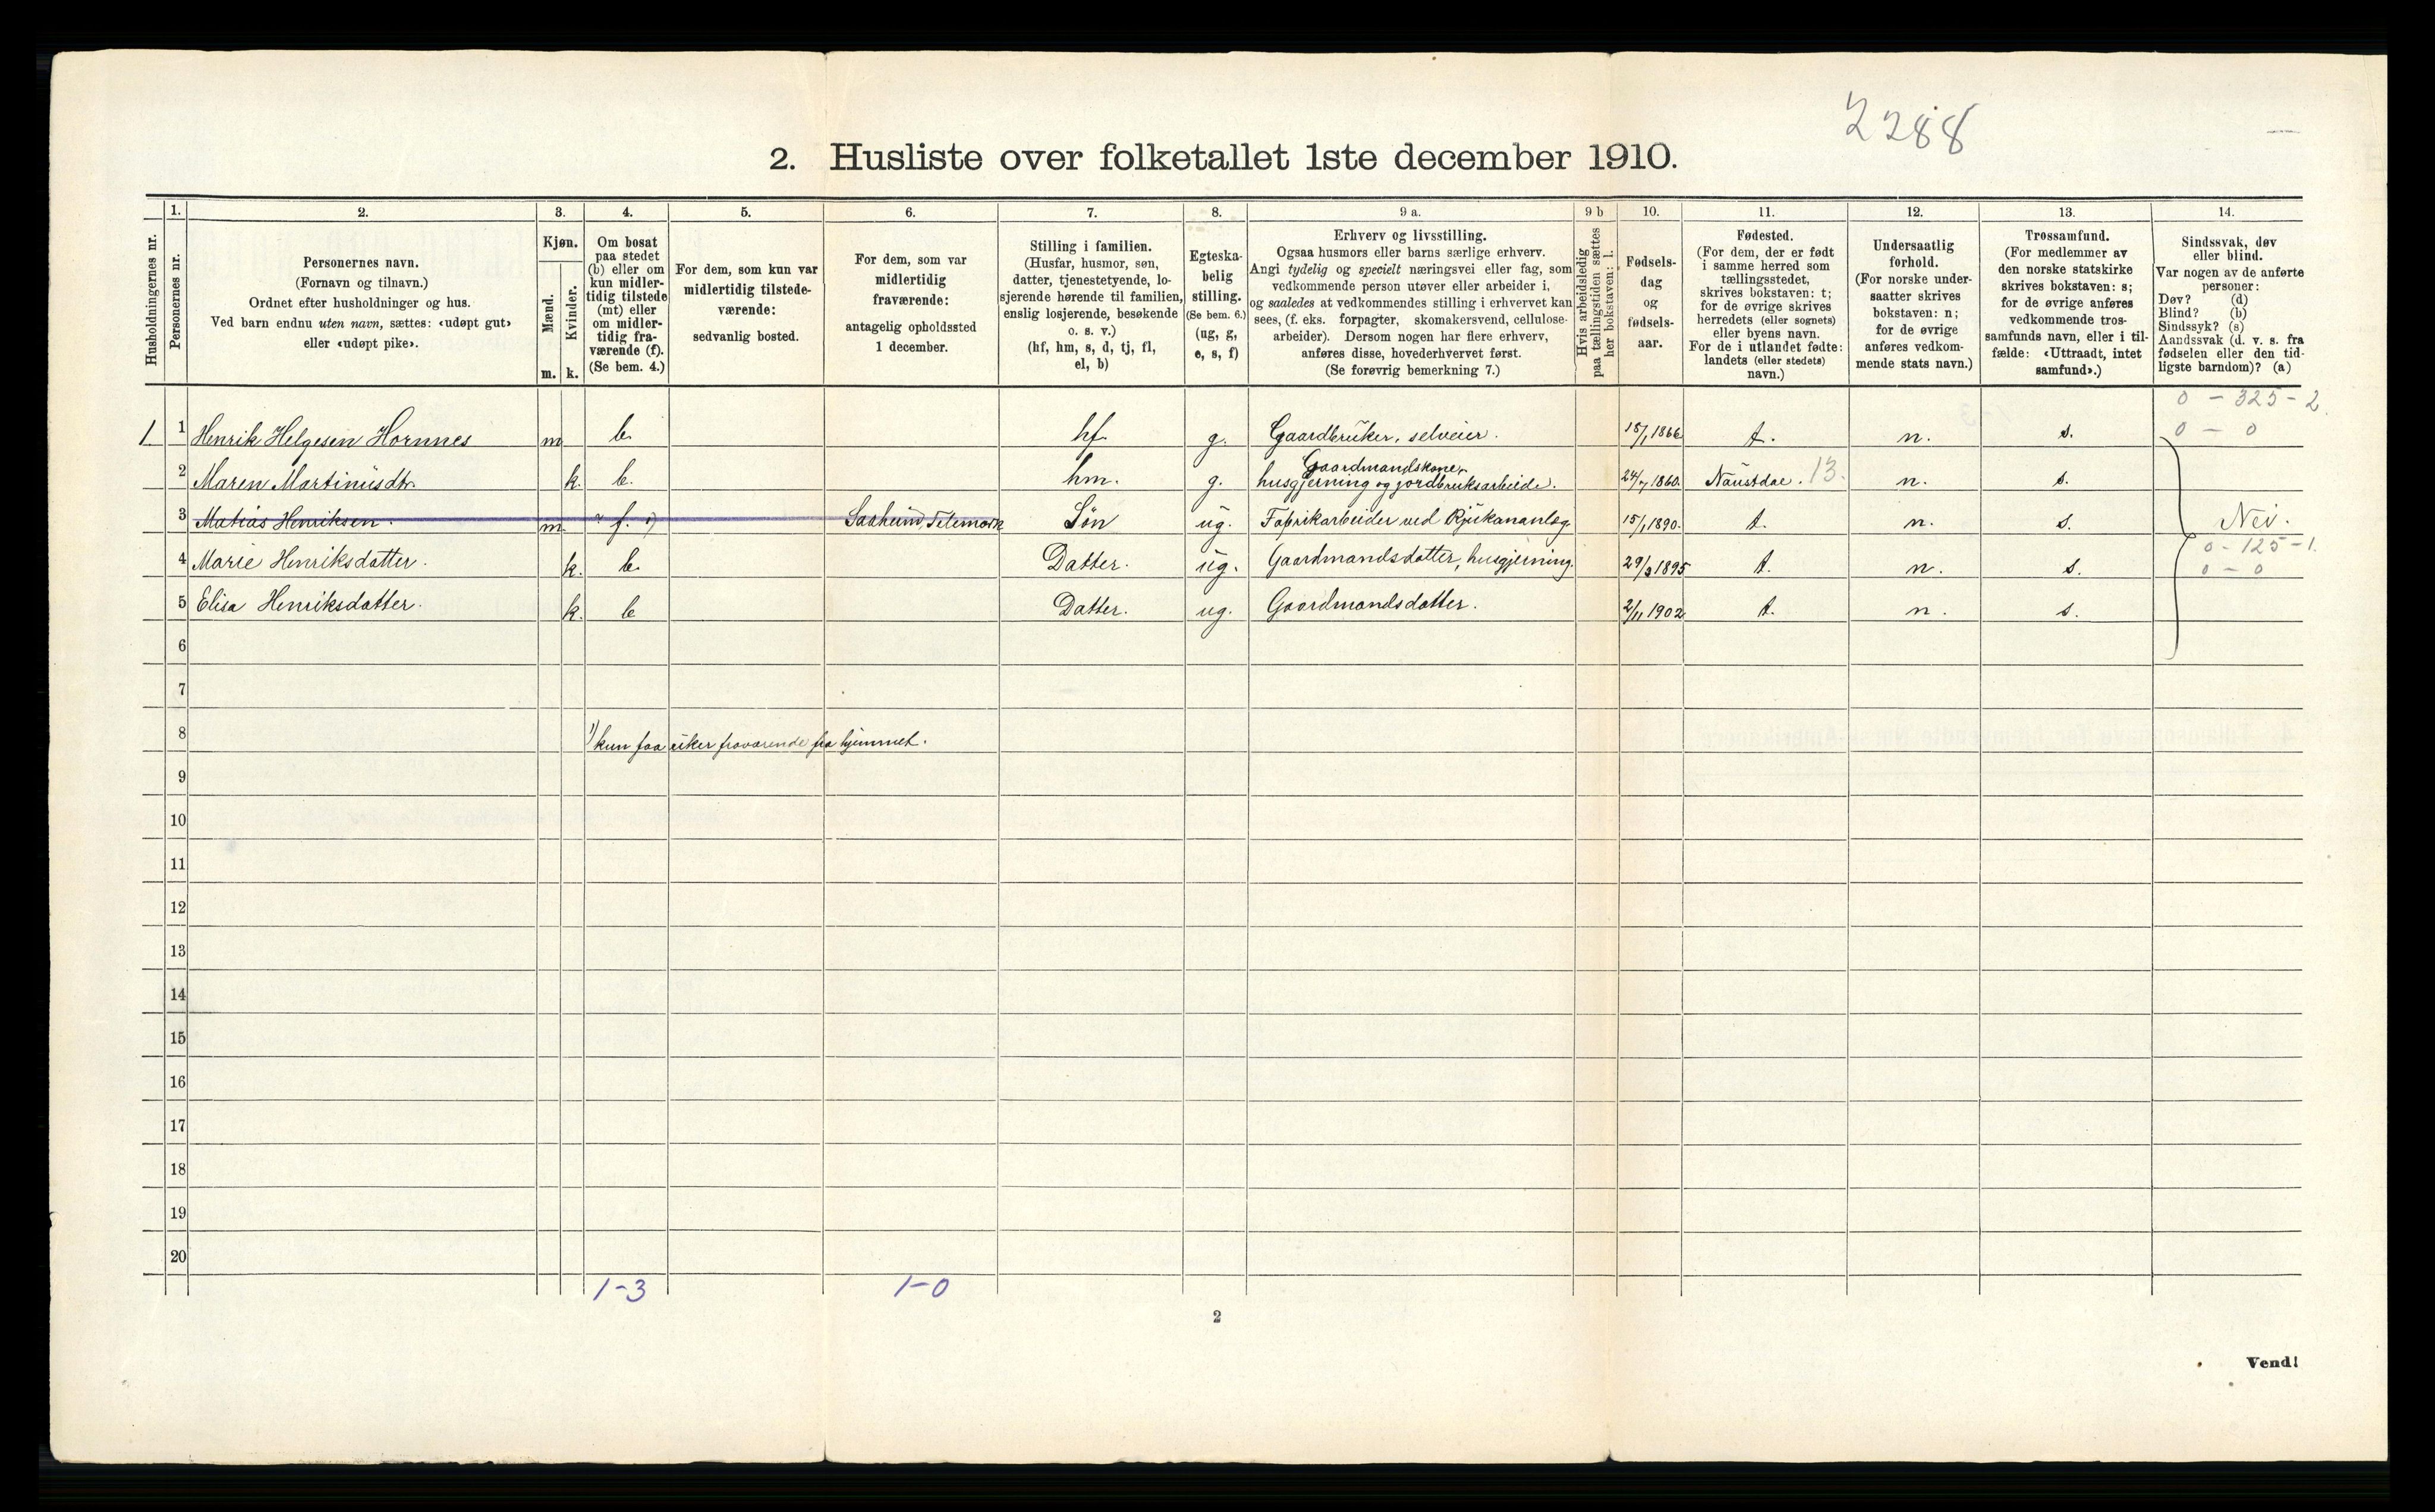 2288
2. Husliste over folketallet 1ste december 1910.
Husholdningernes nr.
1. Personernes nr.
2. Personernes navn. (Fornavn og tilnavn.) Ordnet efter husholdninger og hus. Ved barn endnu uten navn, sættes: «udøpt gut» eller «udøpt pike».
3. Kjøn. Mænd. m. Kvinder. k.
4. Om bosat paa stedet (b) eller om kun midlertidig tilstede (mt) eller om midlertidig fraværende (f). (Se bem. 4.)
5. For dem, som kun var midlertidig tilstedeværende: sedvanlig bosted.
6. For dem, som var midlertidig fraværende: antagelig opholdssted 1 december.
7. Stilling i familien. (Husfar, husmor, søn, datter, tjenestetyende, losjerende hørende til familien, enslig losjerende, besøkende o. s. v.) (hf, hm, s, d, tj, fl, el, b)
8. Egteskabelig stilling. (Se bem. 6.) (ug, g, e, s, f)
9 a. Erhverv og livsstilling. Ogsaa husmors eller barns særlige erhverv. Angi tydelig og specielt næringsvei eller fag, som vedkommende person utøver eller arbeider i, og saaledes at vedkommendes stilling i erhvervet kan sees, (f. eks. forpagter, skomakersvend, cellulosearbeider). Dersom nogen har flere erhverv, anføres disse, hovederhvervet først. (Se forøvrig bemerkning 7.)
9 b Hvis arbeidsledig paa tællingstiden sættes her bokstaven: l.
10. Fødselsdag og fødselsaar.
11. Fødested. (For dem, der er født i samme herred som tællingsstedet, skrives bokstaven: t; for de øvrige skrives herredets (eller sognets) eller byens navn. For de i utlandet fødte: landets (eller stedets) navn.)
12. Undersaatlig forhold. (For norske undersaatter skrives bokstaven: n; for de øvrige anføres vedkommende stats navn.)
13. Trossamfund. (For medlemmer av den norske statskirke skrives bokstaven: s; for de øvrige anføres vedkommende trossamfunds navn, eller i tilfælde: «Uttraadt, intet samfund».)
14. Sindssvak, døv eller blind. Var nogen av de anførte personer: Døv? (d) Blind? (b) Sindssyk? (s) Aandssvak (d. v. s. fra fødselen eller den tidligste barndom)? (a)
0 - 325 - 2.
1 1 Henrik Helgesen Hornnes m b. hf. g. Gaardbruker, selveier. 15/1 1866 t. n. s. 0 - 0
2 Maren Martinusdtr. k. b. hm. g. Gaardmandskone, husgjerning og jordbruksarbeide. 24/7 1860. Naustdal. 13. n. s.
3 Matias Henriksen. m f. 1) Saaheim, Telemark Søn ug. Fabrikarbeider ved Rjukananlæg. 15/1 1890. t. n. s. Nei.
0 - 125 - 1.
4 Marie Henriksdatter. k. b. Datter. ug. Gaardmandsdatter, husgjerning. 29/3 1895 t. n. s. 0 - 0
5 Elisa Henriksdatter. k. b Datter. ug. Gaardmandsdatter. 2/11 1902 t. n. s.
6
7
8 1) kun faa uker fraværende fra hjemmet.
9
10
11
12
13
14
15
16
17
18
19
20
1-3 1-0
2
Vend!